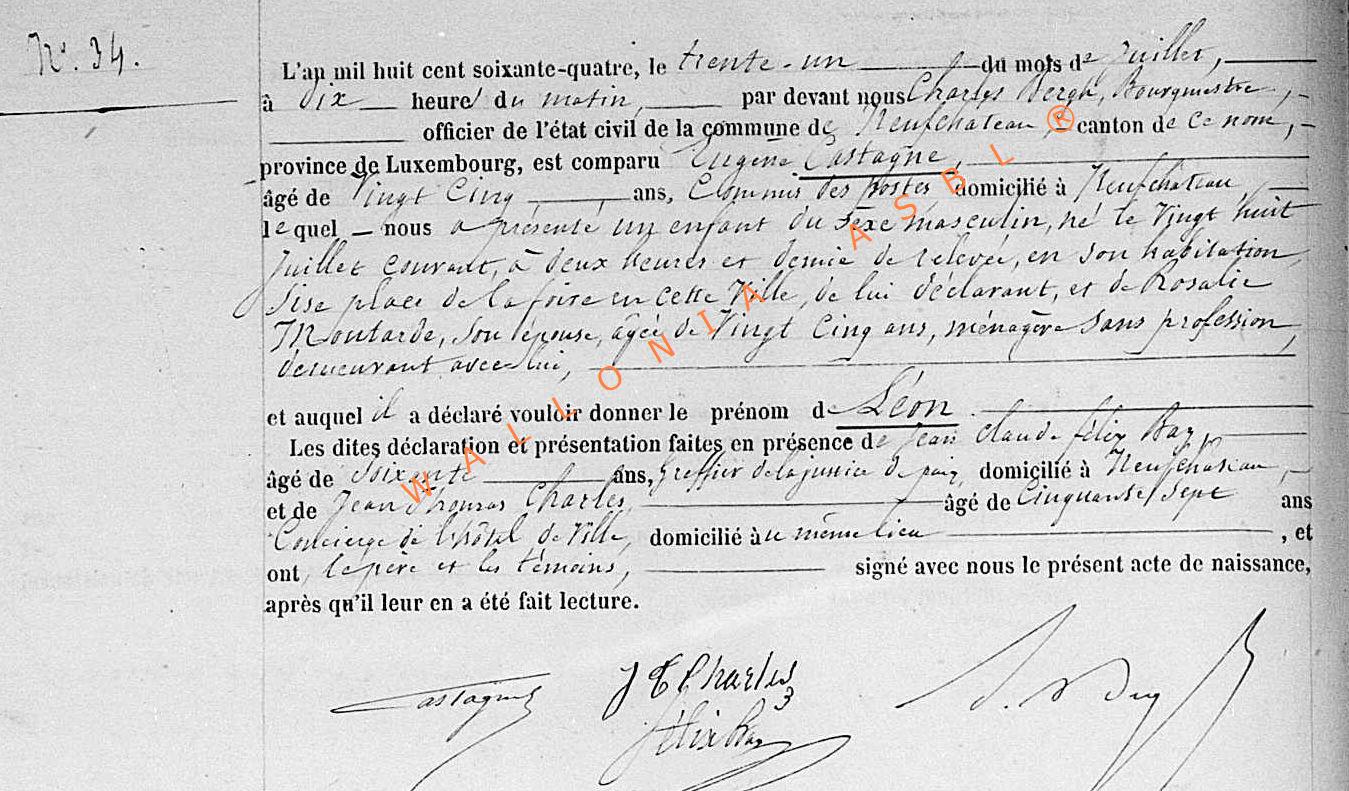 N°. 34.
L'an mil huit cent soixante-quatre, le trente-un du mois de Juillet,
à dix heures du matin, par devant nous Charles Bergh, Bourgmestre,
officier de l'état civil de la commune de Neufchateau, canton de ce nom,
province de Luxembourg, est comparu Eugène Castagne,
âgé de Vingt Cinq ans, Commis des postes domicilié à Neufchateau,
lequel nous a présenté un enfant du sexe masculin, né le Vingt huit
Juillet courant, à deux heures et demie de relevée, en son habitation,
sise place de la foire en cette Ville, de lui déclarant, et de Rosalie
Moutarde, son épouse, âgée de Vingt Cinq ans, ménagère sans profession,
demeurant avec lui,
et auquel il a déclaré vouloir donner le prénom de Léon
Les dites déclaration et présentation faites en présence de Jean Claude félix
âgé de soixante ans, Greffier de la justice de paix, domicilié à Neufchateau,
et de Jean Thomas Charles, âgé de Cinquante sept ans
Concierge de l'hôtel de Ville, domicilié au même lieu, et
ont, le père et les témoins, signé avec nous le présent acte de naissance,
après qu'il leur en a été fait lecture.
WALLONIA ASBL ®
Castagne
J T Charles
félix